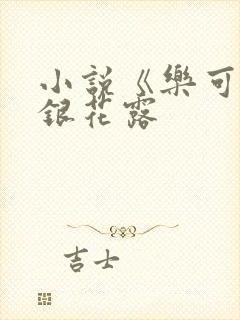 小説《樂可
銀花露
吉士